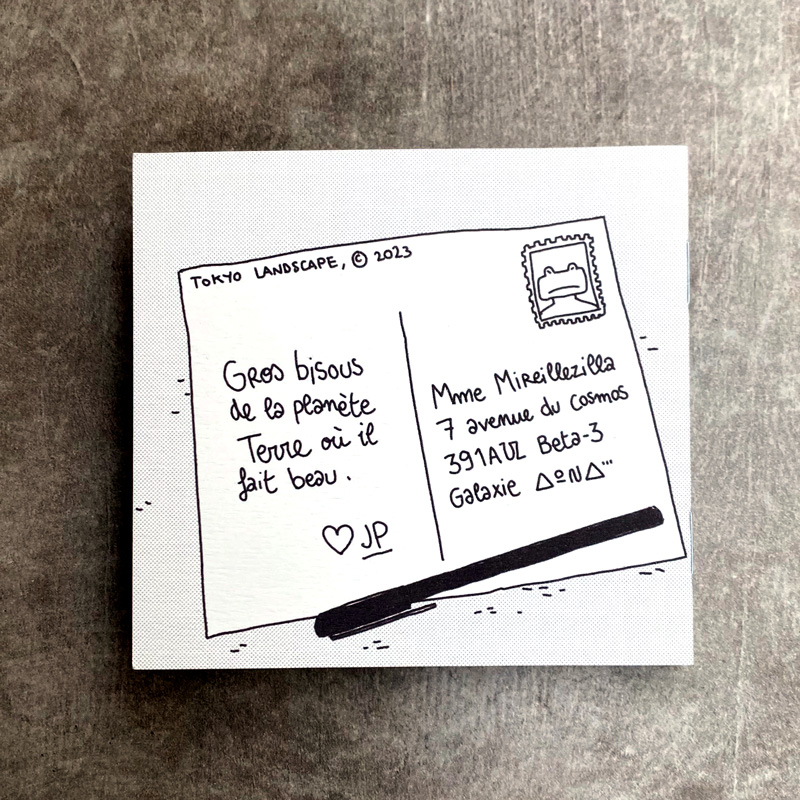 TOKYO LANDSCAPE, © 2023
Gros bisous
de la planète
Terre où il
fait beau.
♡ JP
Mme Mireillezilla
7 avenue du cosmos
391AUZ Beta-3
Galaxie ΔºNΔ'''